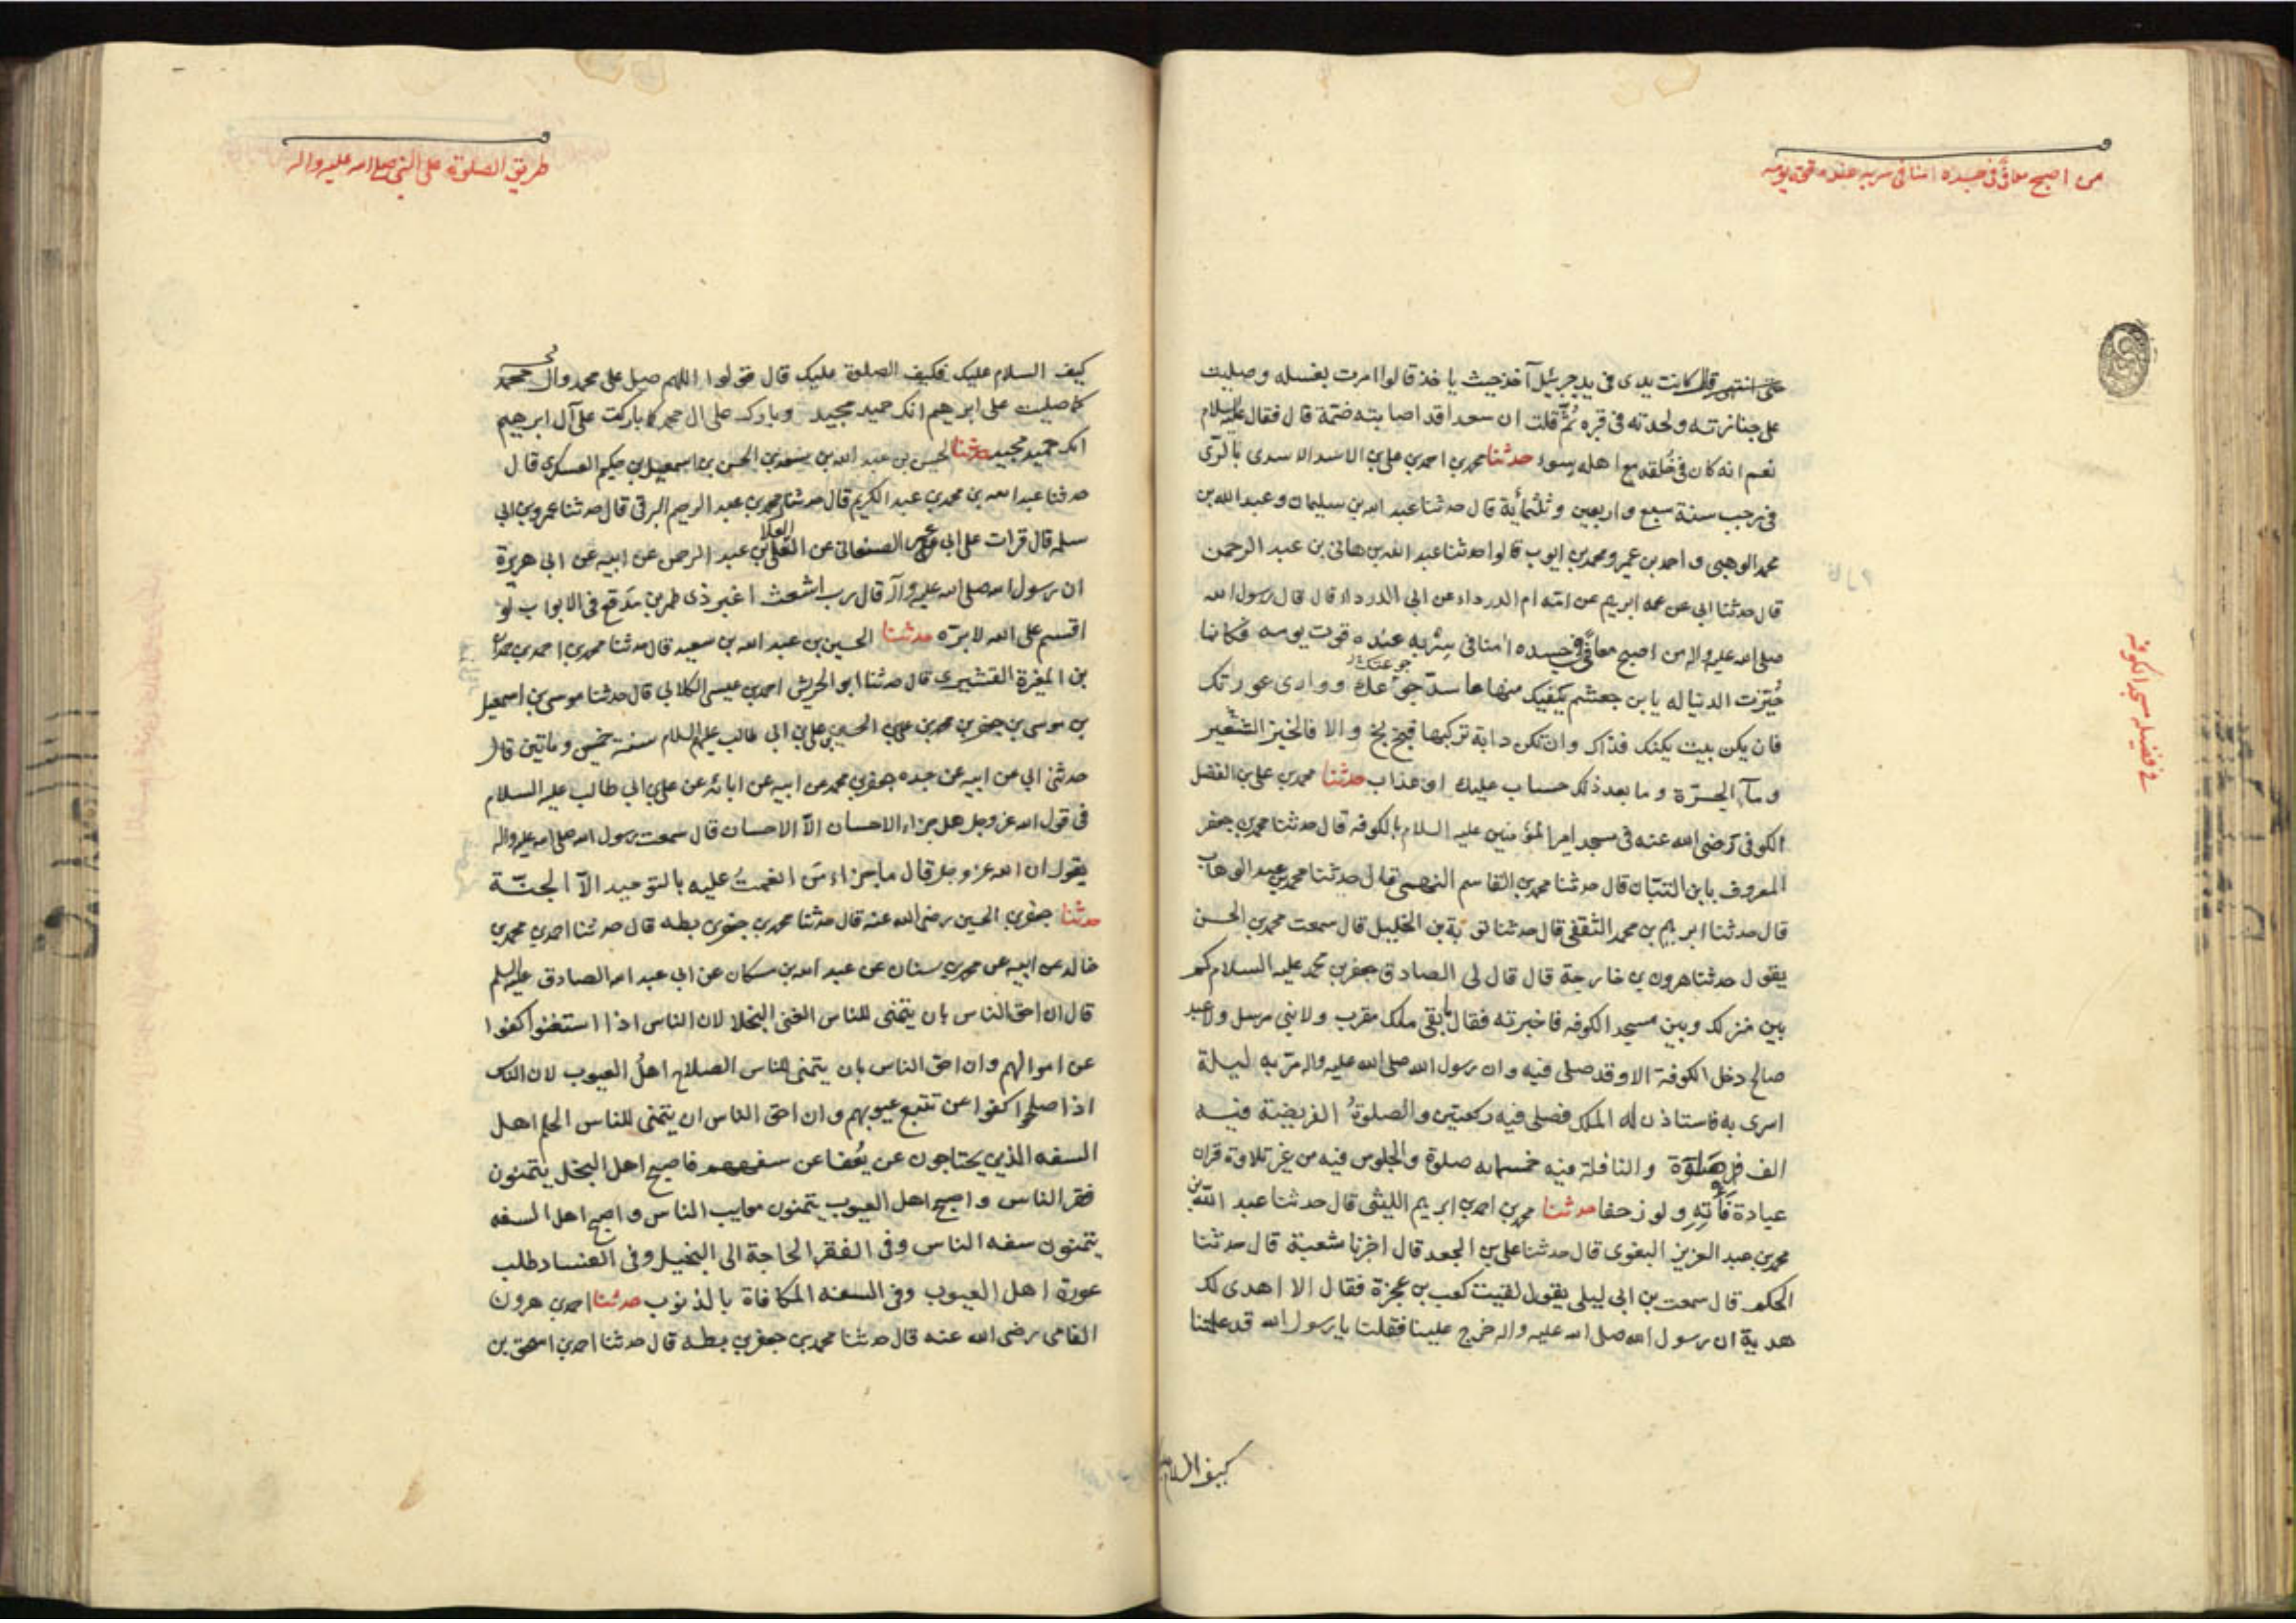 من اصبح معافى فى جسده امنا فى سربه عنده قوت يومه
قال كانت يدى فى يد جبرئيل آخذ حيث ياخذ قالوا امرت بغسله وصليت
على جنازته ولحدته فى قبره ثُمّ قلت ان سعدا قد اصابته ضمّة قال فقال عليه السلام
نعم انه كان فى خُلقه مع اهله سوء حدثنا محمد بن احمد بن على بن الاسد الاسدى بالرّى
فى رجب سنة سبع واربعين وثلثمائة قال حدثنا عبد الله بن سليمان وعبد الله بن
محمد الوهبى واحمد بن عمير ومحمد بن ايوب قالوا حدثنا عبد الله بن هانى بن عبد الرحمن
قال حدثنا ابى عن عمه ابرهيم عن امّه ام الدرداء عن ابى الدرداء قال قال رسول الله
صلى الله عليه واله من اصبح معافًى فى جسده امنا فى سِرْبه عنده قوت يومه فكانما
جوعتك
حُيّزت الدنيا له يا بن جعشم يكفيك منها ما سدّ جوعك ووارى عورتك
فان يكن بيت يكنك فذاك وان تكن دابة تركبها فبخ بخ والا فالخبز الشعير
وماء الجرّة وما بعد ذلك حساب عليك او عذاب حدثنا محمد بن على بن الفضل
الكوفى رضى الله عنه فى مسجد امير المؤمنين عليه السلام بالكوفه قال حدثنا محمد بن جعفر
المعروف بابن التبّان قال حدثنا محمد بن القاسم النهمى قال حدثنا محمد بن عبد الوهاب
قال حدثنا ابرهيم بن محمد الثقفى قال حدثنا توبة بن الخليل قال سمعت محمد بن الحسن
يقول حدثنا هرون بن خارجة قال قال لى الصادق جعفر بن محمد عليه السلام كم
بين منزلك وبين مسجد الكوفه فاخبرته فقال ما بقى ملك مقرب ولا نبى مرسل ولا عبد
صالح دخل الكوفة الا وقد صلى فيه وان رسول الله صلى الله عليه واله مرّ به ليلة
اسرى به فاستاذن له الملك فصلى فيه ركعتين والصلوةُ الفريضة فيه
الف صلوة والنافلة فيه خمسمايه صلوة والجلوس فيه من غير تلاوة قران
عبادة فَأتِهِ ولو زحفا حدثنا محمد بن احمد بن ابرهيم الليثى قال حدثنا عبد الله بن
محمد بن عبد العزيز البغوى قال حدثنا على بن الجعد قال اخبرنا شعبة قال حدثنا
الحكم قال سمعت بن ابى ليلى يقول لقيت كعب بن عجزة فقال الا اهدى لك
هدية ان رسول الله صلى الله عليه واله خرج علينا فقلنا يا رسول الله قد علمتنا
كيف السلام
فى فضيله مسجد الكوفه
طريق الصلوة على النبى صلى الله عليه واله
كيف السلام عليك فكيف الصلوة عليك قال قولوا اللهم صل على محمد وال محمد
كما صليت على ابرهيم انك حميد مجيد وبارك على ال محمد كما باركت على آل ابرهيم
انك حميد مجيد حدثنا الحسن بن عبد الله بن سعيد بن الحسن بن اسمعيل بن حكيم العسكرى قال
حدثنا عبد الله بن محمد بن عبد الكريم قال حدثنا محمد بن عبد الرحيم البرقى قال حدثنا عمرو بن ابى
العلا
سلمه قال قرات على ابى عمر الصنعانى عن العلاء بن عبد الرحمن عن ابيه عن ابى هريرة
ان رسول الله صلى الله عليه واله قال رب اشعث اغبر ذى طمرين مدقع فى الابواب لو
اقسم على الله لابرّه حدثنا الحسين بن عبد الله بن سعيد قال حدثنا محمد بن احمد بن حمدان
بن المغيرة القشيرى قال حدثنا ابو الحريش احمد بن عيسى الكلابى قال حدثنا موسى بن اسمعيل
بن موسى بن جعفر بن محمد بن على بن الحسين بن على بن ابى طالب عليهم السلام سنة خمس وماتين قال
حدثنى ابى عن ابيه عن جده جعفر بن محمد عن ابيه عن ابائه عن على بن ابى طالب عليه السلام
فى قول الله عز وجل هل جزاء الاحسان الّا الاحسان قال سمعت رسول الله صلى الله عليه واله
يقول ان الله عز وجل قال ما جزاء مَن انعمتُ عليه بالتوحيد الّا الجنّة
حدثنا جعفر بن الحسين رضى الله عنه قال حدثنا محمد بن جعفر بن بطه قال حدثنا احمد بن محمد بن
خالد عن ابيه عن محمد بن سنان عن عبد الله بن مسكان عن ابى عبد الله الصادق عليه السلم
قال ان احق الناس بان يتمنى للناس الغنى البخلا لان الناس اذا استغنوا كفوا
عن اموالهم وان احق الناس بان يتمنى للناس الصلاح اهلُ العيوب لان الناس
اذا صلحوا كفوا عن تتبع عيوبهم وان احق الناس ان يتمنى للناس الحلم اهل
السفه الذين يحتاجون عن يُعفا عن سفههم فاصبح اهل البخل يتمنون
فقر الناس واصبح اهل العيوب يتمنون معايب الناس واصبح اهل السفه
يتمنون سفه الناس وفى الفقر الحاجة الى البخيل وفى الفساد طلب
عورة اهل العيوب وفى السفه المكافاة بالذنوب حدثنا احمد بن هرون
الفامى رضى الله عنه قال حدثنا محمد بن جعفر بن بطه قال حدثنا احمد بن اسحق بن